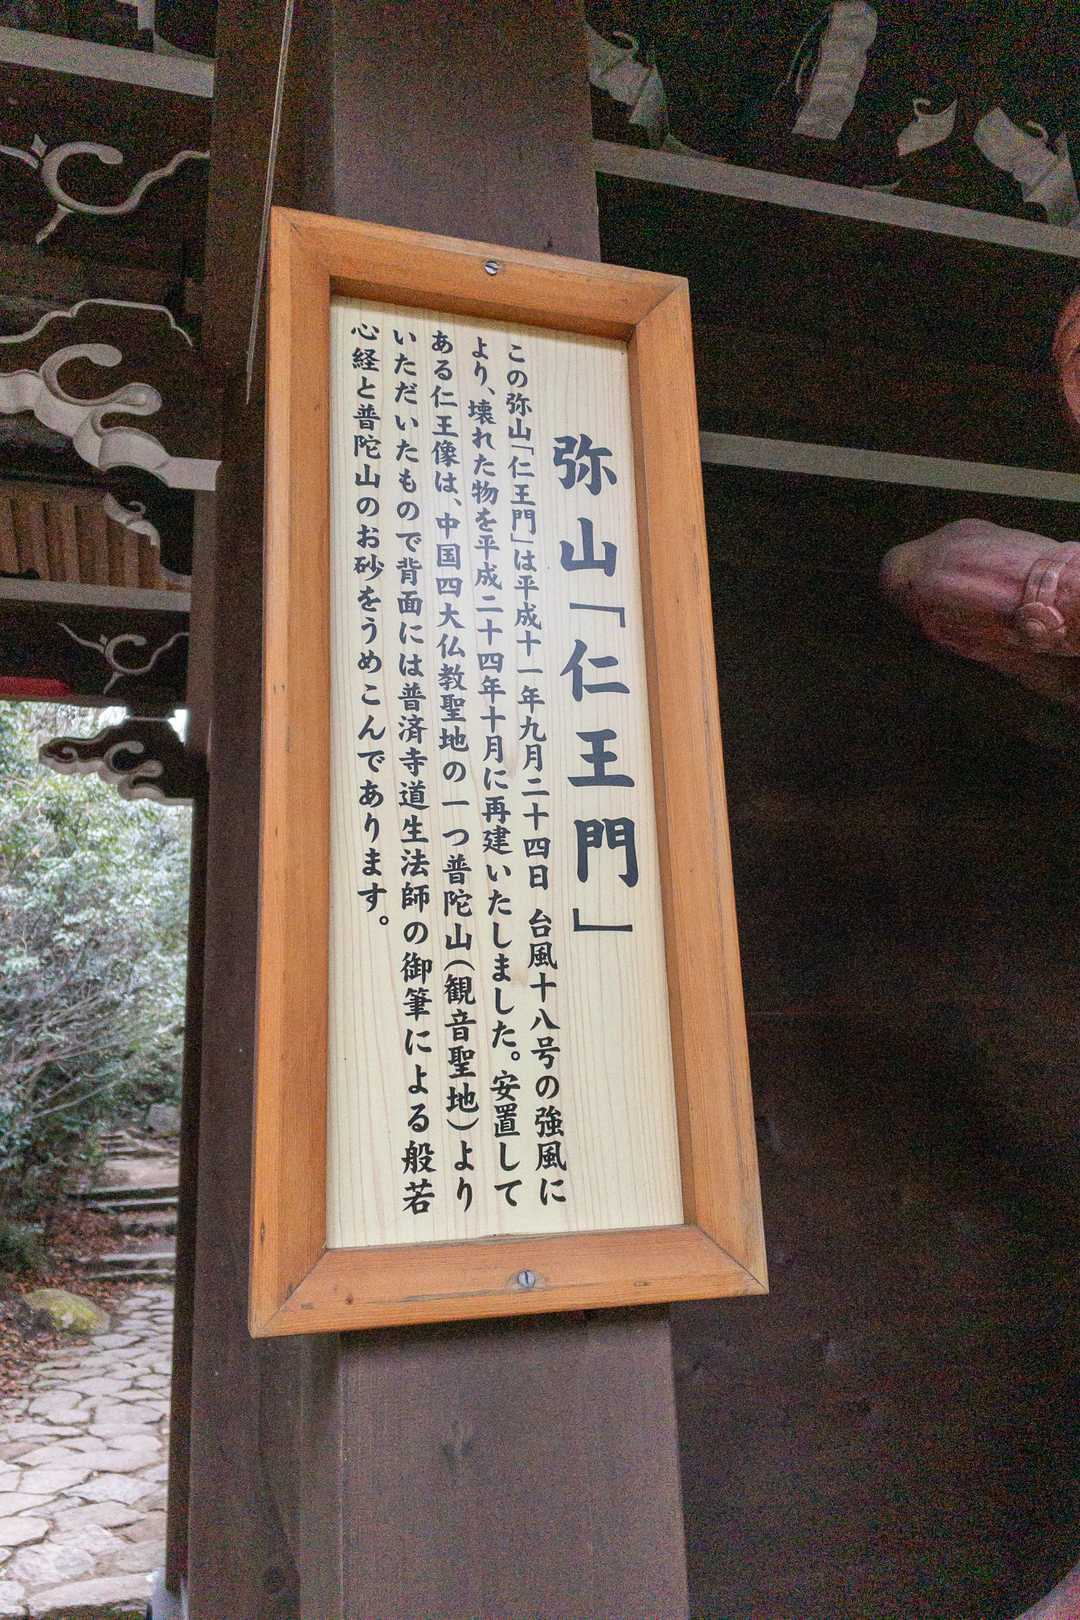 弥山「仁王門」
この弥山「仁王門」は平成十一年九月二十四日 台風十八号の強風に
より、壊れた物を平成二十四年十月に再建いたしました。安置して
ある仁王像は、中国四大仏教聖地の一つ普陀山(観音聖地)より
いただいたもので背面には普済寺道生法師の御筆による般若
心経と普陀山のお砂をうめこんであります。